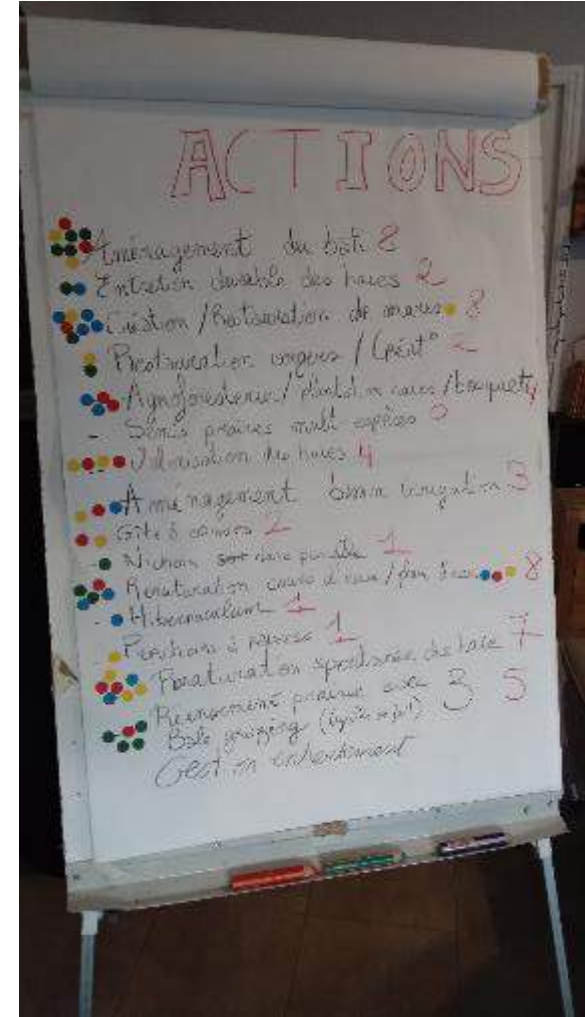 ACTIONS
Aménagement du bâti 8
Entretien durable des haies 2
Création / Restauration de mares 8
Restauration vergers / Créat° 2
Agroforesterie / plantation haies / bouquets 4
- Semis prairies multi espèces 0
Valorisation des haies 4
Aménagement bassin irrigation 3
Gîte à 2
- Nichoir 1
Renaturation cours d'eau / 8
- Hibernaculum 1
- Perchoirs à rapaces 1
spontanée de haie 7
prairies avec 3 5
Bale grazing
Gestion enherbement